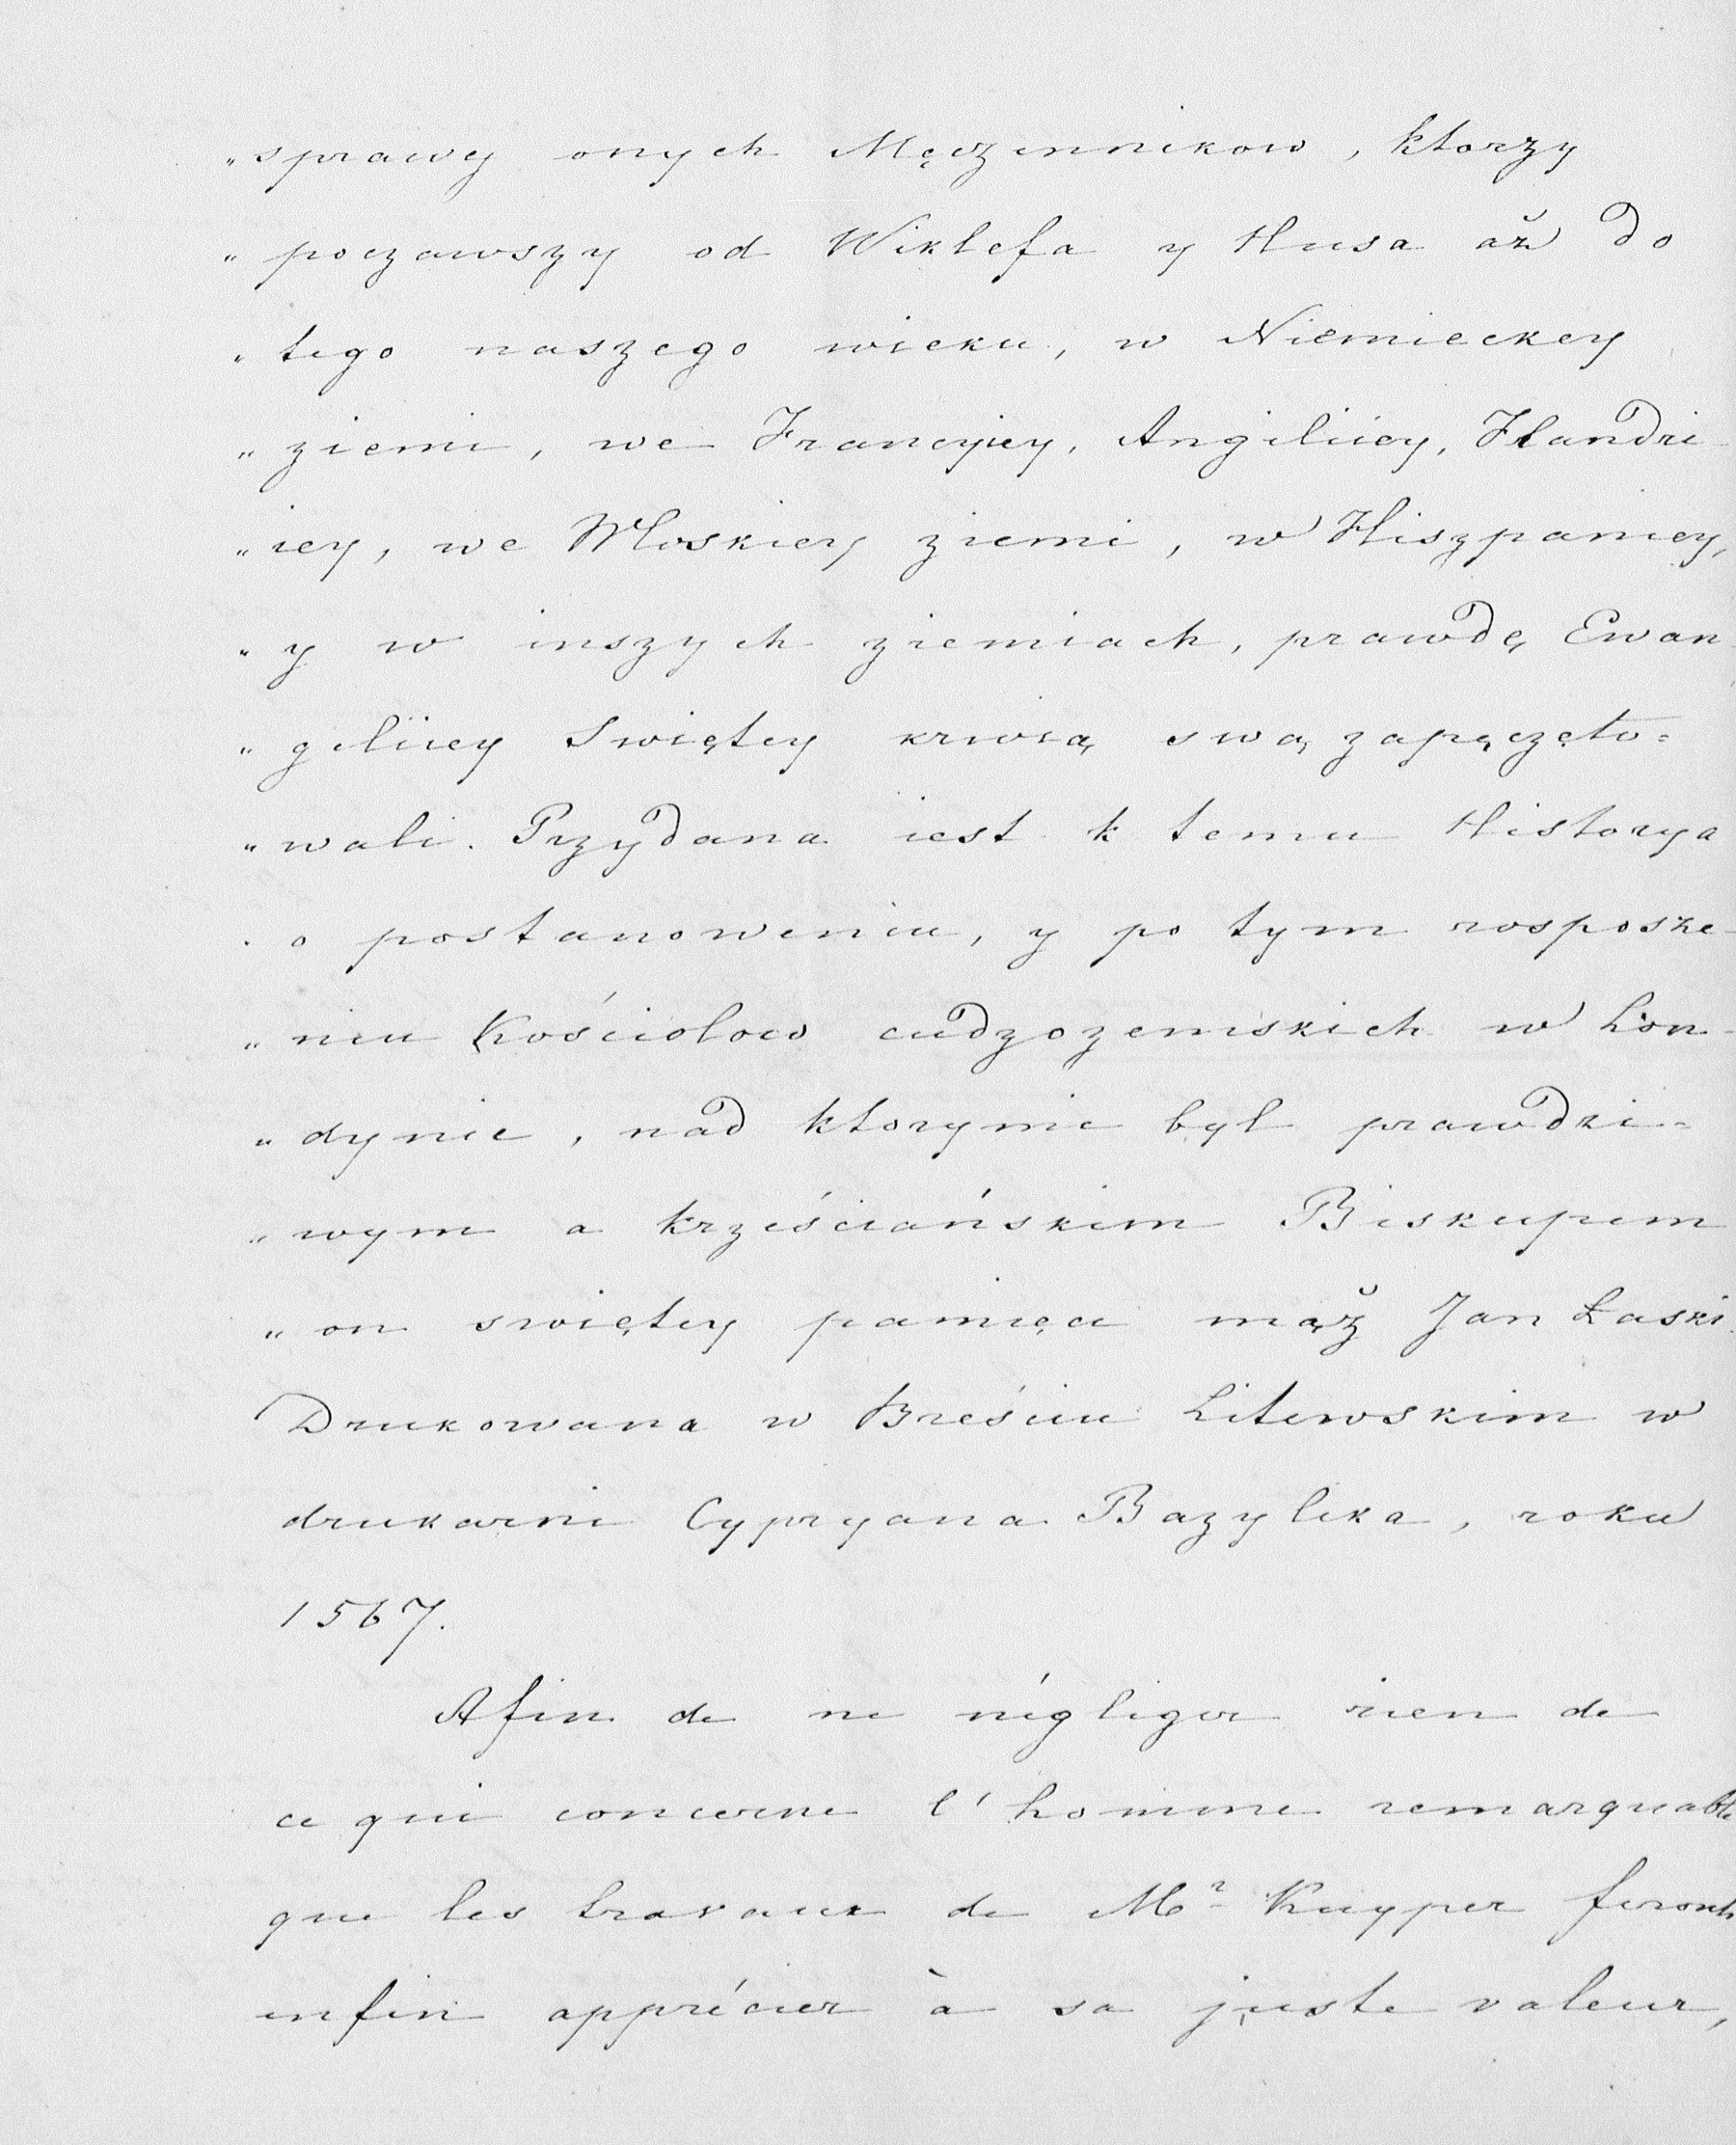 „sprawy onych Męczennikow, ktorzy
„ poczawszy od Wiklefa y Husa aż do
„ tego naszego wieku, w Niemieckey
„ ziemi, we Francyiey, Angeliiey, Flandri-
„ iey, we Włoskiey ziemi, w Hiszpaniey,
„ y w inszych ziemiach, prawdę Ewan-
„ geliiey Swiętey krwią swą zapęczęto=
„ wali. Przydana iest k temu Historya
„ o postanoweniu, y po tym rosposze-
„ niu Kościolow cudzozemskich w Lon-
„ dynie, nad ktorymi był prawdzi-
„ wym a krześciańskim Biskupem
„ on swiętey pamięci mąż Jan Łaski.
Drukowana w Breściu Litewskim w
drukarni Cypryana Bazylika, roku
1567.
Afin de ne négliger rien de
ce qui concerne l'homme remarquable
que les travaux de Mr Kuyper feront
enfin apprécier à sa juste valeur,